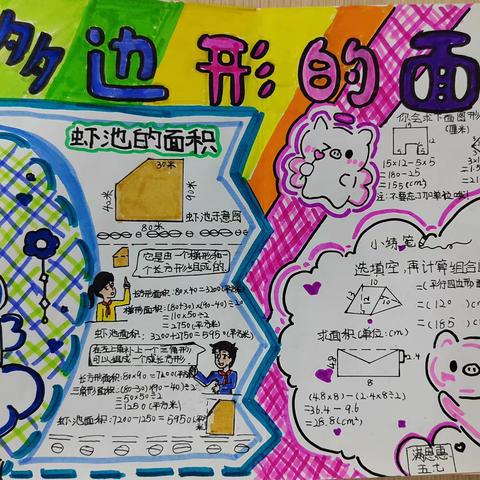 多边形的面
虾池的面积
30米
40米
90米
80米
虾池示意图
它是由一个梯形和一个长方形组成的
长方形面积:80×40=3200(平方米)
梯形面积:(80+30)×(90-40)÷2
=110×50÷2
=2750(平方米)
虾池面积:3200+2750=5950(平方米)
在左上角补上一个三角形
可以组成一个成长方形
长方形面积:80×90=7200(平方米)
三角形面积:(80-30)×(90-40)÷2
=50×50÷2
=1250(平方米)
虾池面积:7200-1250=5950(平方米)
你会求下面图形
(厘米)
15×12-5×5
=180-25
=155(cm²)
注:不要忘了加单位哦!
小练笔
选填空,再计算组合
10
12
求面积(单位:cm)
4.8
2.4
8
(4.8×8)-(2.4×8÷2)
=36.4-9.6
=28.8(cm²)
=(平行四边形
=(120)c
=(185)c
满恩惠
五七